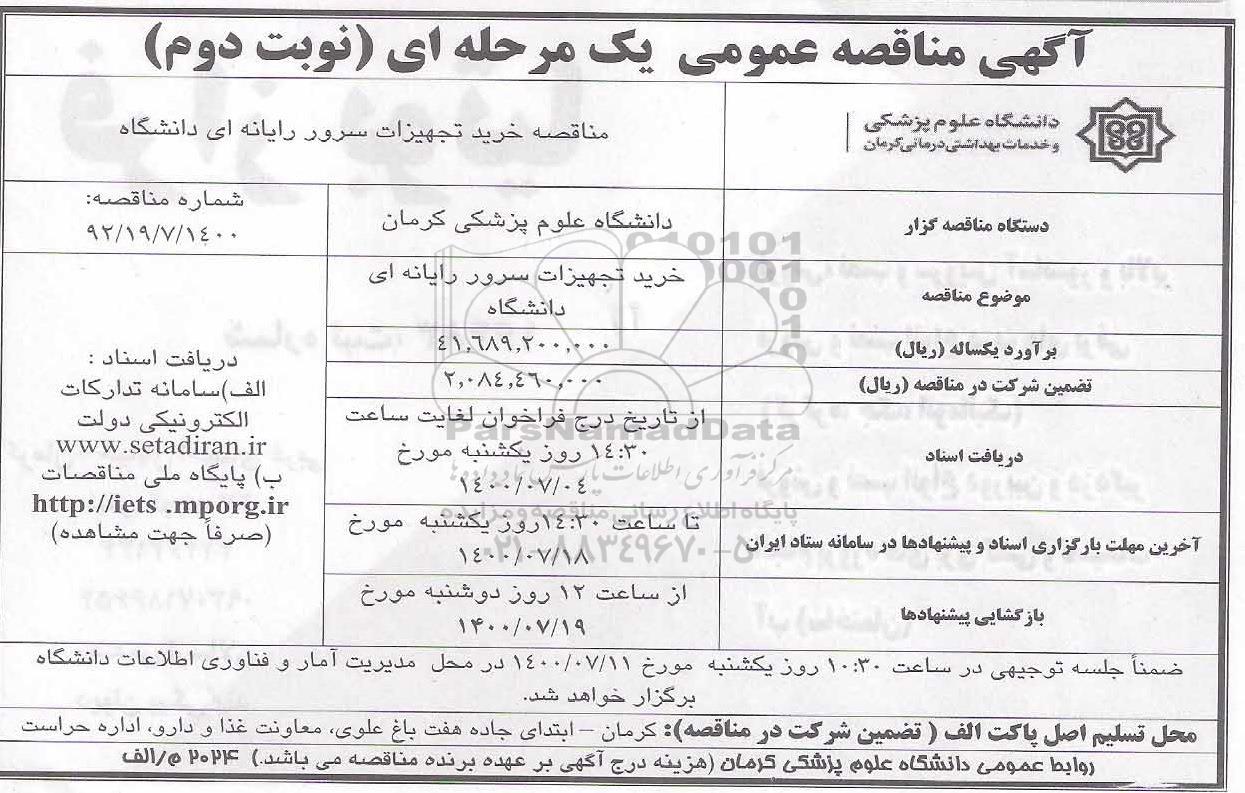 آگهی مناقصه عمومی یک مرحله ای (نوبت دوم)
دانشگاه علوم پزشکی
و خدمات بهداشتی درمانی کرمان
مناقصه خرید تجهیزات سرور رایانه ای دانشگاه
دستگاه مناقصه گزار
دانشگاه علوم پزشکی کرمان
شماره مناقصه:
۹۲/۱۹/۷/۱٤۰۰
موضوع مناقصه
خرید تجهیزات سرور رایانه ای
دانشگاه
برآورد یکساله (ریال)
٤۱,٦۸۹,۲۰۰,۰۰۰
تضمین شرکت در مناقصه (ریال)
۲,۰۸٤,٤٦۰,۰۰۰
دریافت اسناد
از تاریخ درج فراخوان لغایت ساعت
۱٤:۳۰ روز یکشنبه مورخ
۱٤۰۰/۰۷/۰٤
آخرین مهلت بارگزاری اسناد و پیشنهادها در سامانه ستاد ایران
تا ساعت ۱٤:۳۰روز یکشنبه مورخ
۱٤۰۰/۰۷/۱۸
بازگشایی پیشنهادها
از ساعت ۱۲ روز دوشنبه مورخ
۱۴۰۰/۰۷/۱۹
دریافت اسناد :
الف)سامانه تدارکات
الکترونیکی دولت
www.setadiran.ir
ب) پایگاه ملی مناقصات
http://iets .mporg.ir
(صرفاً جهت مشاهده)
ضمناً جلسه توجیهی در ساعت ۱۰:۳۰ روز یکشنبه مورخ ۱٤۰۰/۰۷/۱۱ در محل مدیریت آمار و فناوری اطلاعات دانشگاه
برگزار خواهد شد.
محل تسلیم اصل پاکت الف ( تضمین شرکت در مناقصه): کرمان – ابتدای جاده هفت باغ علوی، معاونت غذا و دارو، اداره حراست
روابط عمومی دانشگاه علوم پزشکی کرمان (هزینه درج آگهی بر عهده برنده مناقصه می باشد.) ۲۰۲۴ م/الف
ParsNamadData
مرکز فرآوری اطلاعات پارس نماد داده ها
پایگاه اطلاع رسانی مناقصه و مزایده
۰۲۱-۸۸۳۴۹۶۷۰-۵